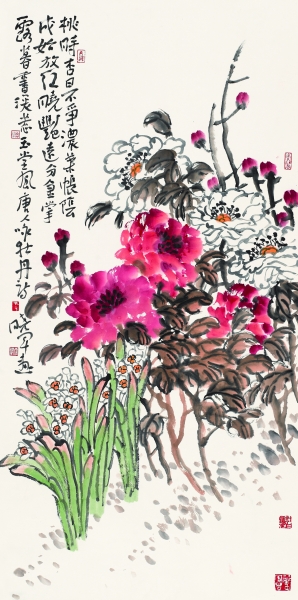 桃時杏日不爭濃葉帳陰
成始放紅曉艷遠分金掌
露暮香深惹玉堂風唐咏牡丹詩